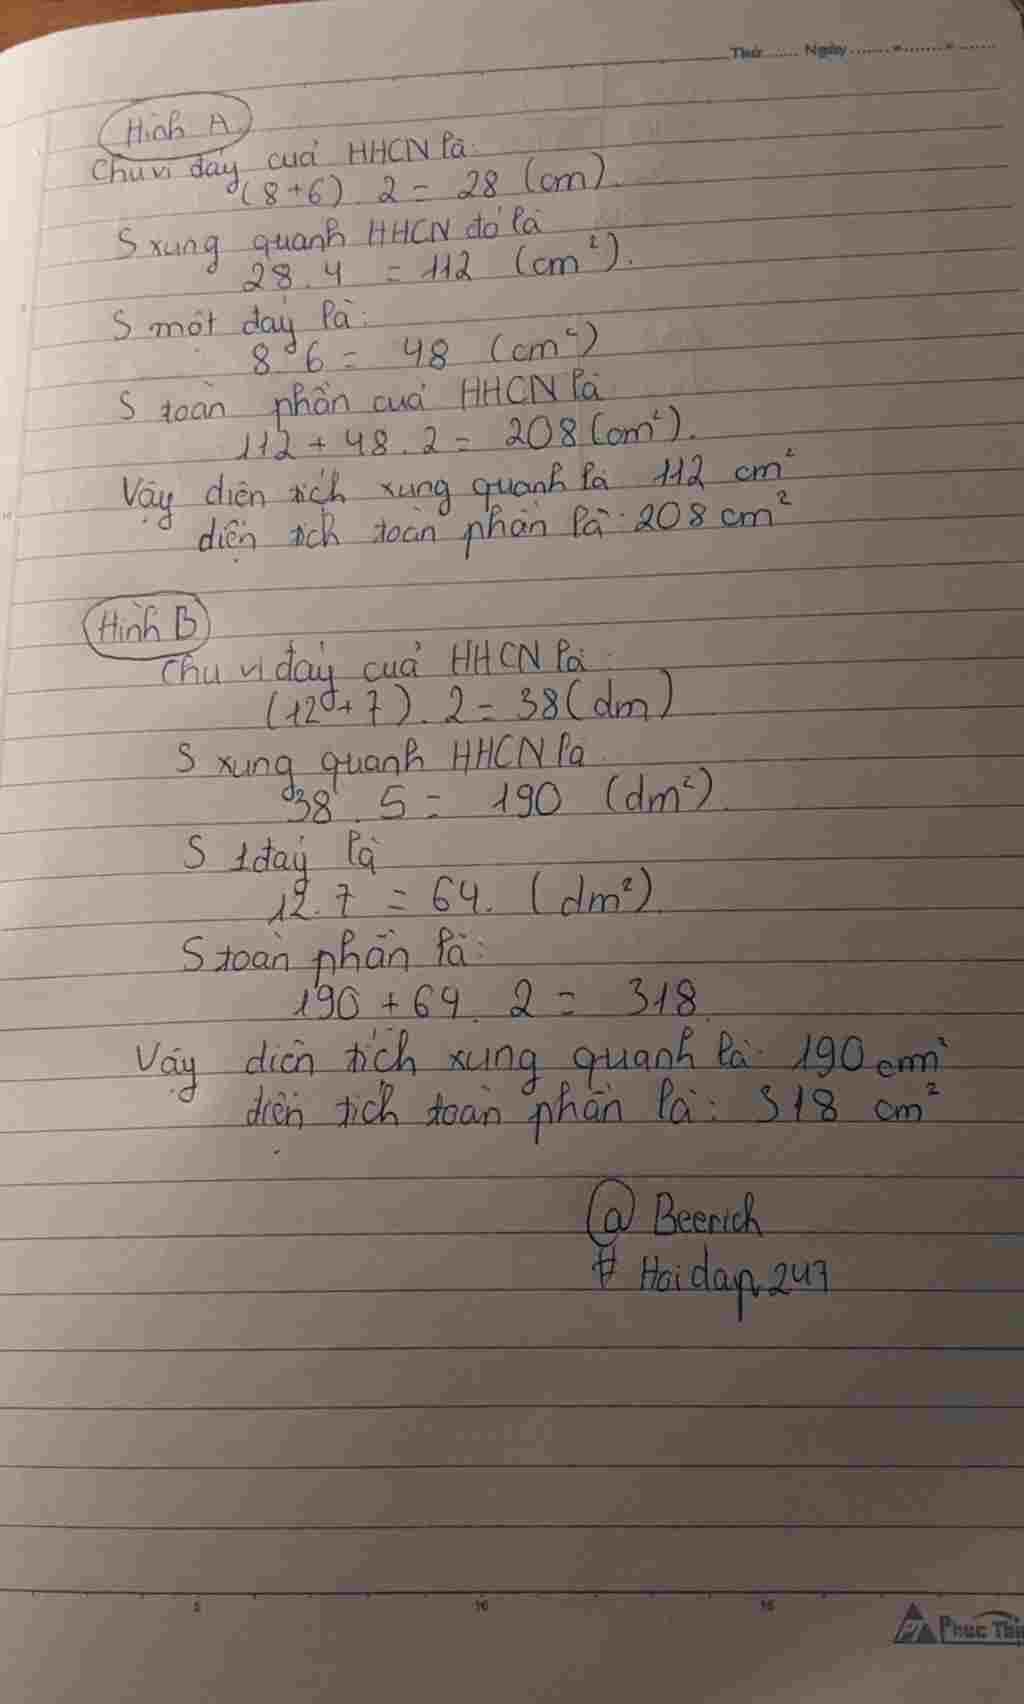 Thứ ...... Ngày ..................
Hình A
Chu vi đáy của HHCN là:
(8+6) . 2 = 28 (cm).
S xung quanh HHCN đó là
28 . 4 = 112 (cm²).
S một đáy là:
8 . 6 = 48 (cm²)
S toàn phần của HHCN là
112 + 48 . 2 = 208 (cm²).
Vậy diện tích xung quanh là 112 cm²
diện tích toàn phần là: 208 cm²
Hình B
Chu vi đáy của HHCN là:
(12+7) . 2 = 38 (dm)
S xung quanh HHCN là
38 . 5 = 190 (dm²).
S 1 đáy là
12 . 7 = 64. (dm²).
S toàn phần là:
190 + 64 . 2 = 318.
Vậy diện tích xung quanh là: 190 cm²
diện tích toàn phần là: 318 cm²
@ Beerich
# Hoidap247
5 10 15
Phuc Thi